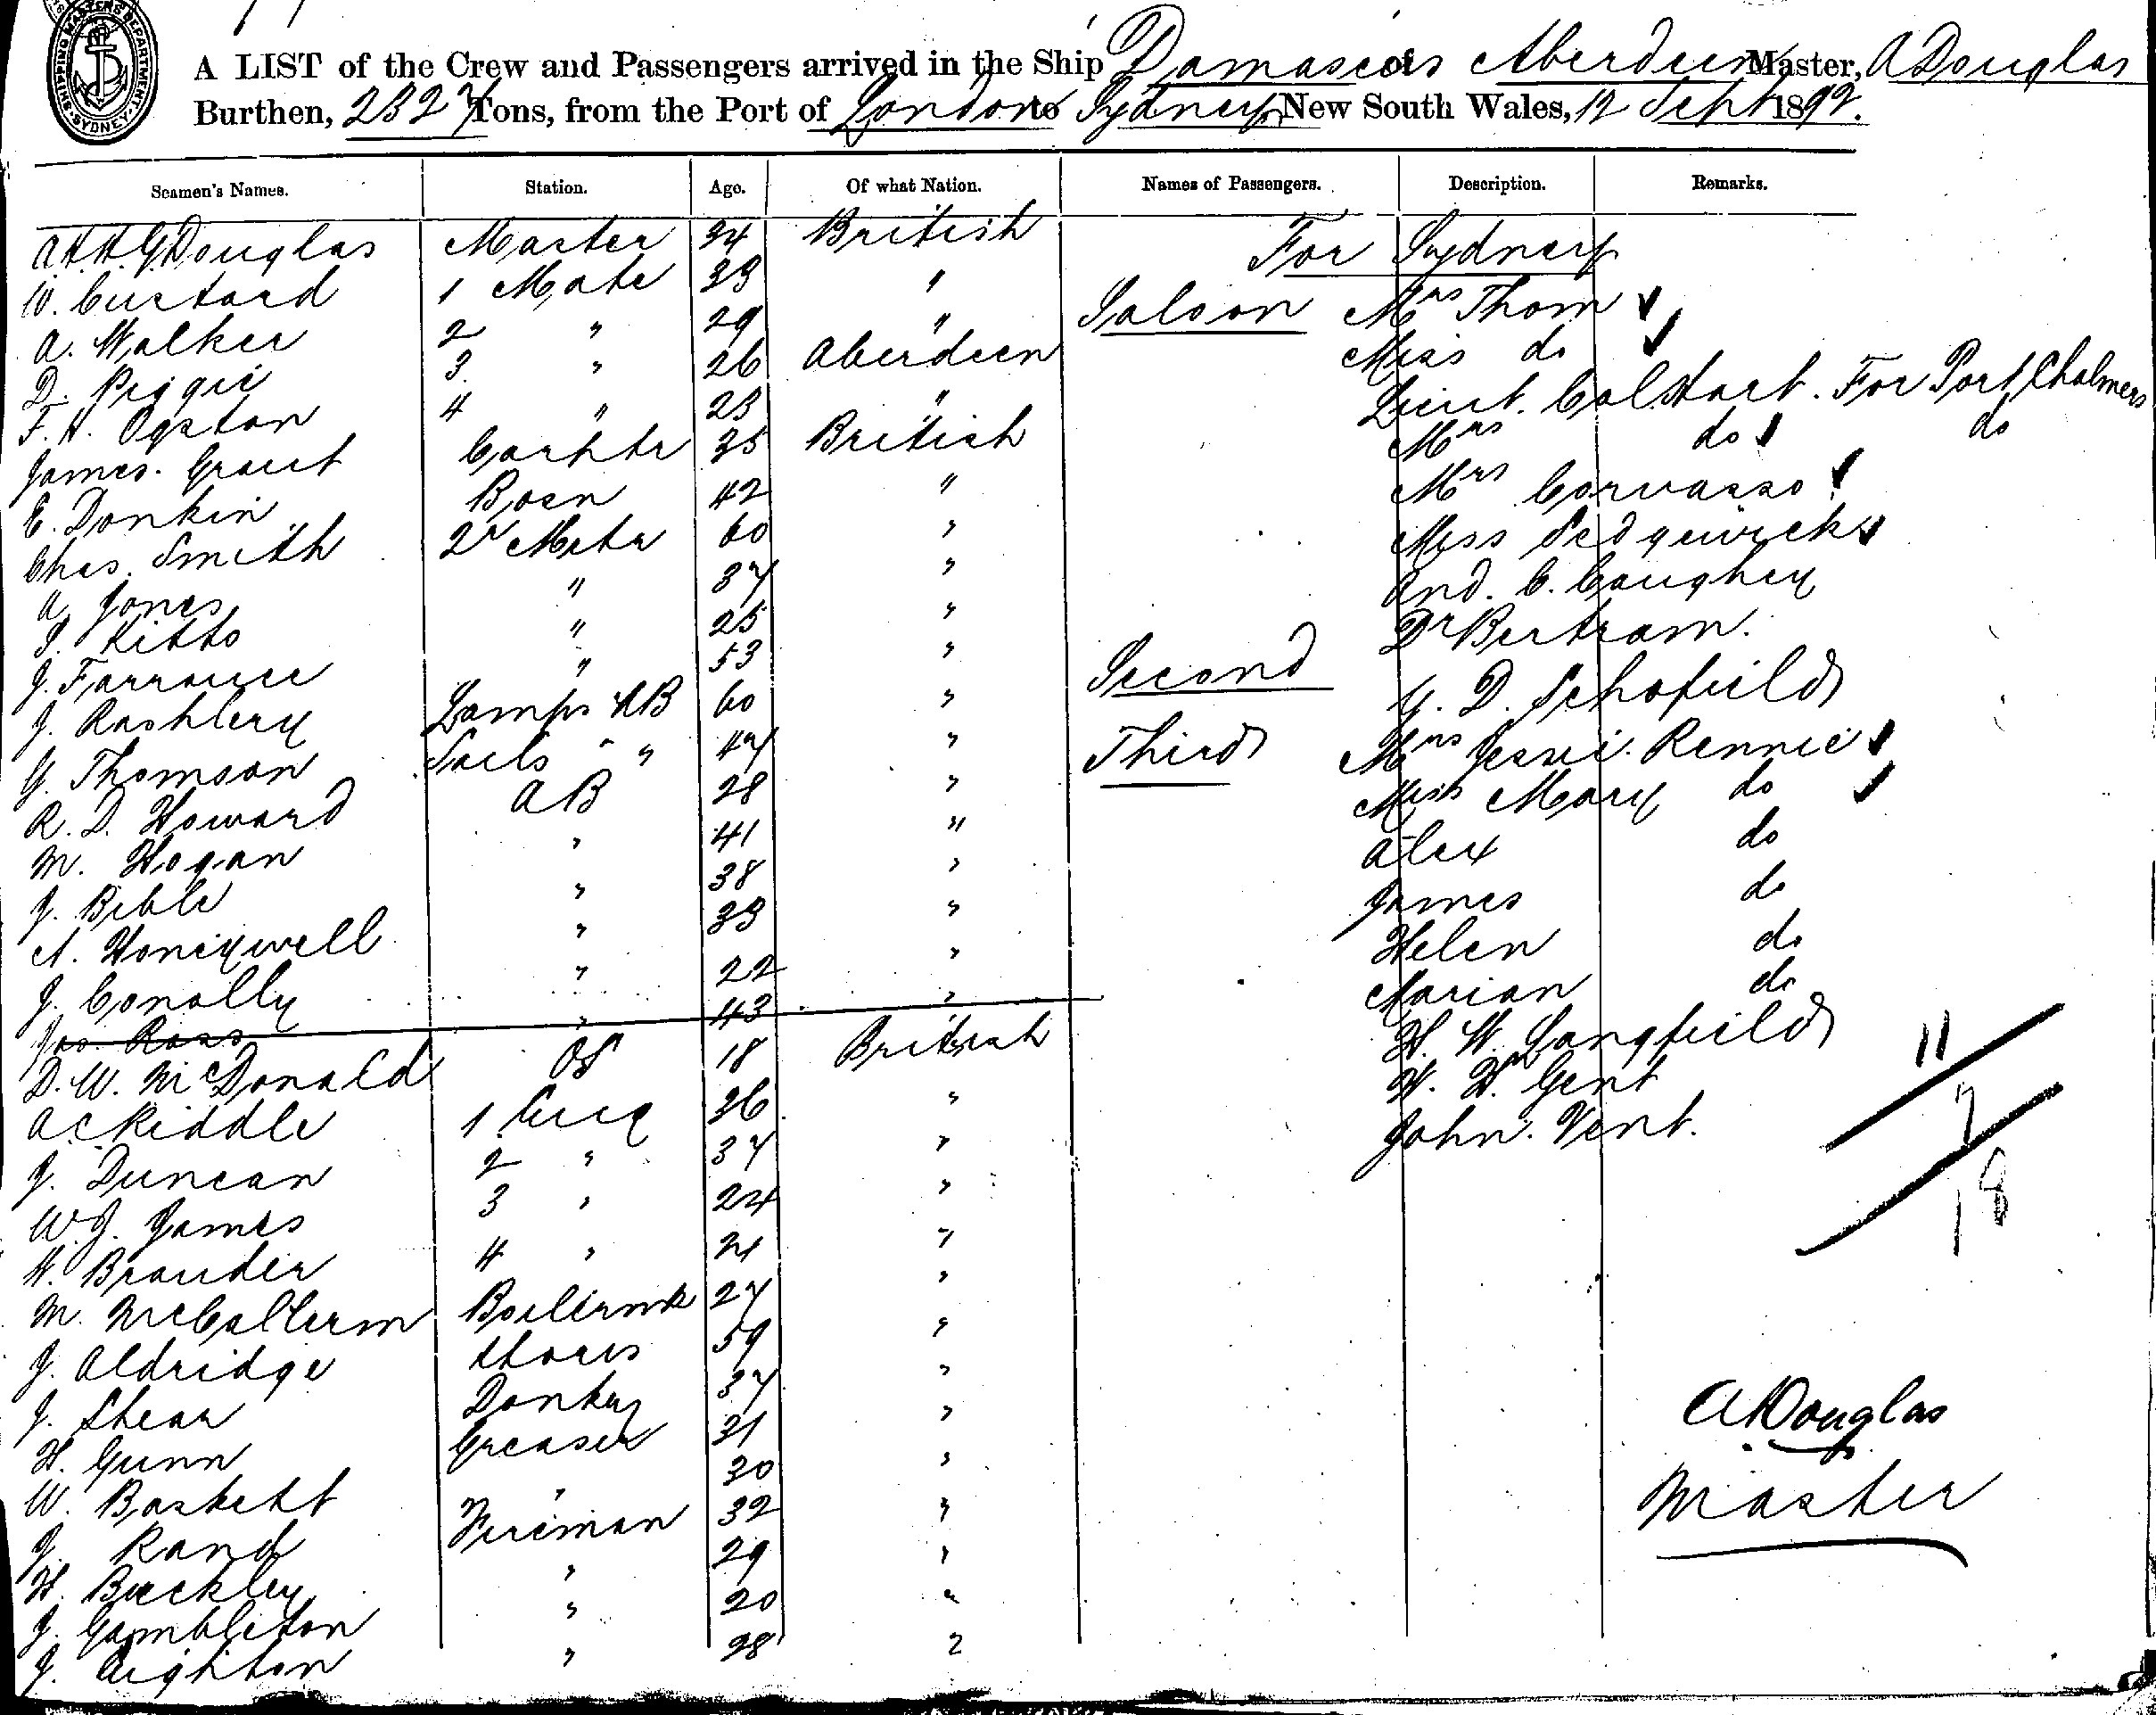 SHIPPING MASTERS DEPARTMENT SYDNEY
A LIST of the Crew and Passengers arrived in the Ship Damascus of Aberdeen Master, A Douglas
Burthen, 2327 Tons, from the Port of London to Sydney New South Wales, 12 Sept 1892.
Seamen's Names. Station. Age. Of what Nation. Names of Passengers. Description. Remarks.
A.H.H.G. Douglas Master 34 British For Sydney
W. Custard 1 Mate 33 " Saloon Mrs Thom
A. Walker 2 " 29 " Miss do
D. Piggie 3 " 26 Aberdeen Lieut. Col. Hart. For Port Chalmers
F. A. Ogston 4 " 23 " Mrs do do
James. Grant Carptr 35 British Mrs Corvasso
E. Donkin Bosn 42 " Miss Sedgewick
Chas. Smith 2r Matr 60 " And. C. Caughey
A. Jones " 37 " Dr Bertram.
S. Kitto " 25 "
J. Farrance " 53 " Second G. D. Schofield
J. Rashley Lamps AB 60 " Third Mrs Jessie. Rennie
G. Thomson Sails " " 47 " Miss Mary do
R. D. Howard AB 28 " Alex do
M. Hogan " 41 " James do
J. Bible " 38 " Helen do
A. Honeywell " 33 " Marian do
J. Conolly " 22 " H. W. Langfield
Jas. Ross " 43 " W. H. Gent
D. W. McDonald OS 18 British John. Vent.
A C Riddle 1 Eng 36 " 11
J. Duncan 2 " 37 " 7
W. J. James 3 " 24 " 18
W. Brander 4 " 21 "
M. McCallum Boilermk 27 "
J. Aldridge Stores 59 "
J. Shear Donkey 37 "
H. Gunn Greaser 31 " A Douglas
W. Baskett " 30 " Master
J. Rand Fireman 32 "
H. Buckley " 29 "
J. Gambleton " 20 "
J. Leighton " 28 "